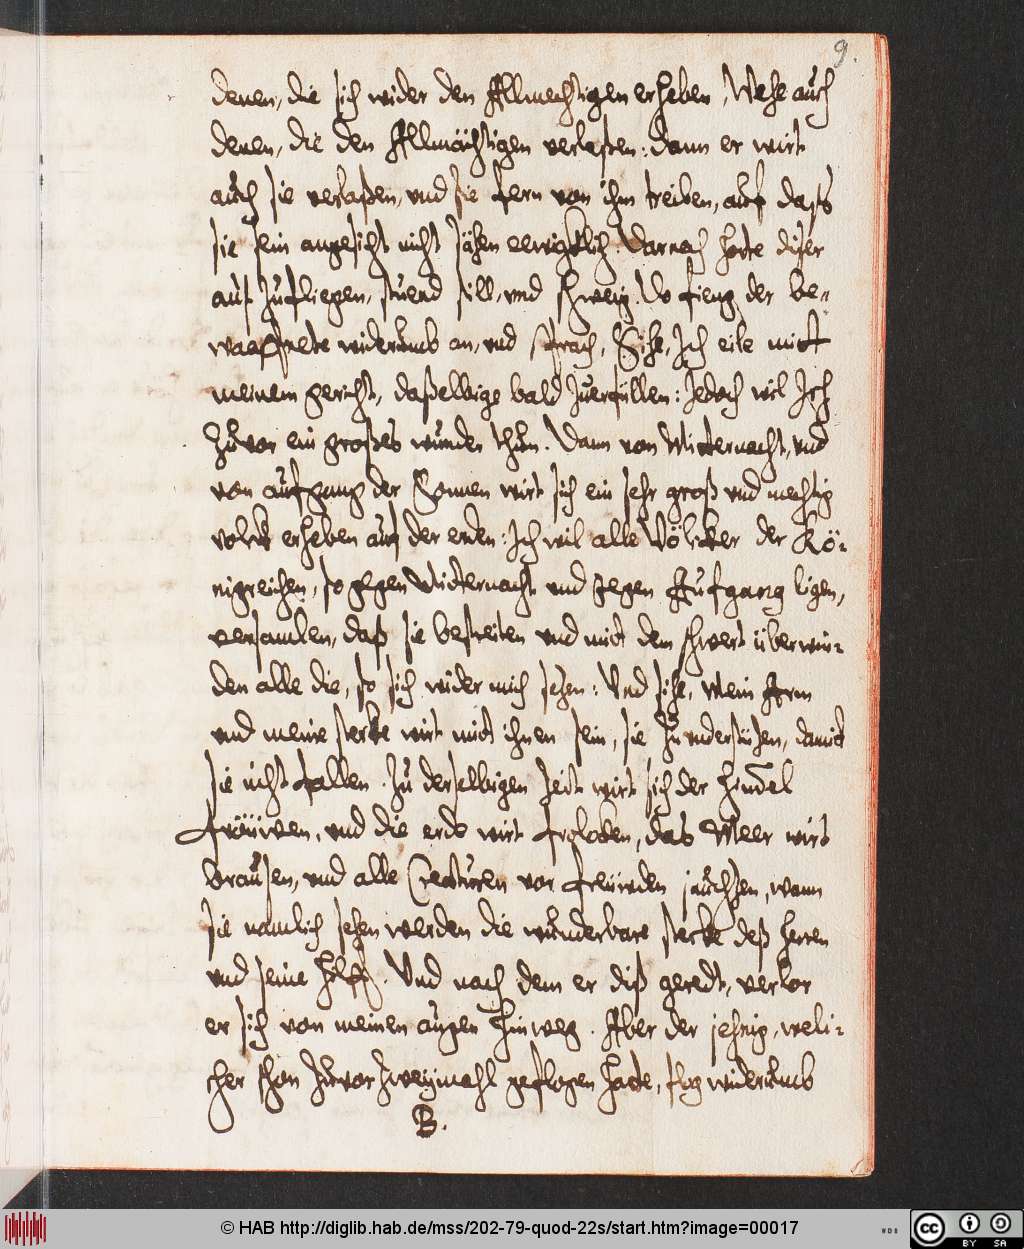 9.
denen, die sich wider den Allmechtigen erheben, Wehe auch
denen, die den Allmächtigen verlaßen: dann er wirt
auch sie verlaßen, vnd sie fern von ihm treiben, auf daß
sie sein angesicht nicht sähen eewigklich. Darnach horte diser
auf zufliegen, stuend still, vnd schweig. Do fieng der be-
waaffnete widerumb an, vnd sprach, Sihe, Ich eile mitt
meinem gericht, daßelbige bald zuerfüllen: Jedoch wil Ich
zuvor ein großes wunder thun. Dann von Mitternacht, vnd
von aufgang der Sonnen wirt sich ein sehr groß vnd mechtig
volck erheben auf der erden: Ich wil alle Völcker der Kö-
nigreichen, so gegen Mitternacht vnd gegen Aufgang ligen,
versamlen, daß sie bestreiten vnd mit dem schwert überwin-
den alle die, so sich wider mich setzen: Vnd sihe, Mein Arm
vnd meine sterke wirt mit ihnen sein, sie zu vnderstützen, damit
sie nicht fallen. Zu derselbigen zeit wirt sich der himel
fröüwen, vnd die erde wirt froloken, das Meer wirt
brausen, vnd alle Creaturen vor freüwden jauchzen, wann
sie namlich sehen werden die wunderbare sterke deß herren
vnd seine hilff. Vnd nach dem er diß geredt, verlor
er sich von meinen augen hinweg. Aber der jehnig, weli-
cher schon zuvor zweymahl geflogen hatte, flog widerumb
B.
© HAB http://diglib.hab.de/mss/202-79-quod-22s/start.htm?image=00017
WDB
CC BY SA